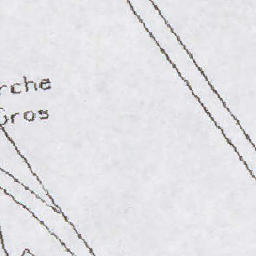 rche
Gros